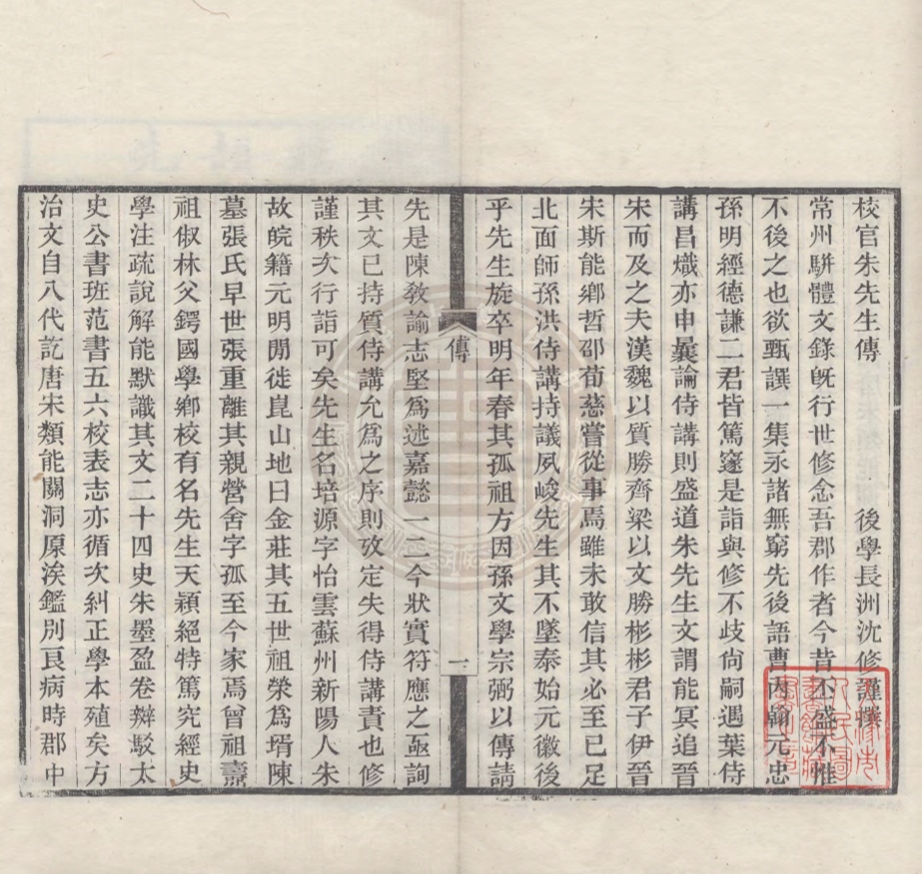 校官朱先生傳　後學長洲沈修謹譔
常州駢體文錄旣行世修念吾郡作者今昔丕盛不惟
不後之也欲甄譔一集永諸無窮先後語曹內翰元忠
孫明經德謙二君皆篤窪是詣與修不歧尙嗣遇葉侍
講昌熾亦申曩論侍講則盛道朱先生文謂能冥追晉
宋而及之夫漢魏以質勝齊梁以文勝彬彬君子伊晉
宋斯能鄕哲邵荀慈嘗從事焉雖未敢信其必至已足
北面師孫洪侍講持議夙峻先生其不墜泰始元徽後
乎先生旋卒明年春其孤祖方因孫文學宗弼以傳請
傳
一
先是陳敎諭志堅爲述嘉懿一二今狀實符應之亟詢
其文已持質侍講允爲之序則攷定失得侍講責也修
謹秩次行詣可矣先生名培源字怡雲蘇州新陽人朱
故皖籍元明閒徙崑山地曰金莊其五世祖榮爲壻陳
墓張氏早世張重離其親營舍字孤至今家焉曾祖燾
祖俶林父鍔國學鄕校有名先生天穎絕特篤究經史
學注疏說解能默識其文二十四史朱墨盈卷辯駁太
史公書班范書五六校表志亦循次糾正學本殖矣方
治文自八代訖唐宋類能關洞原涘鑑別良病時郡中